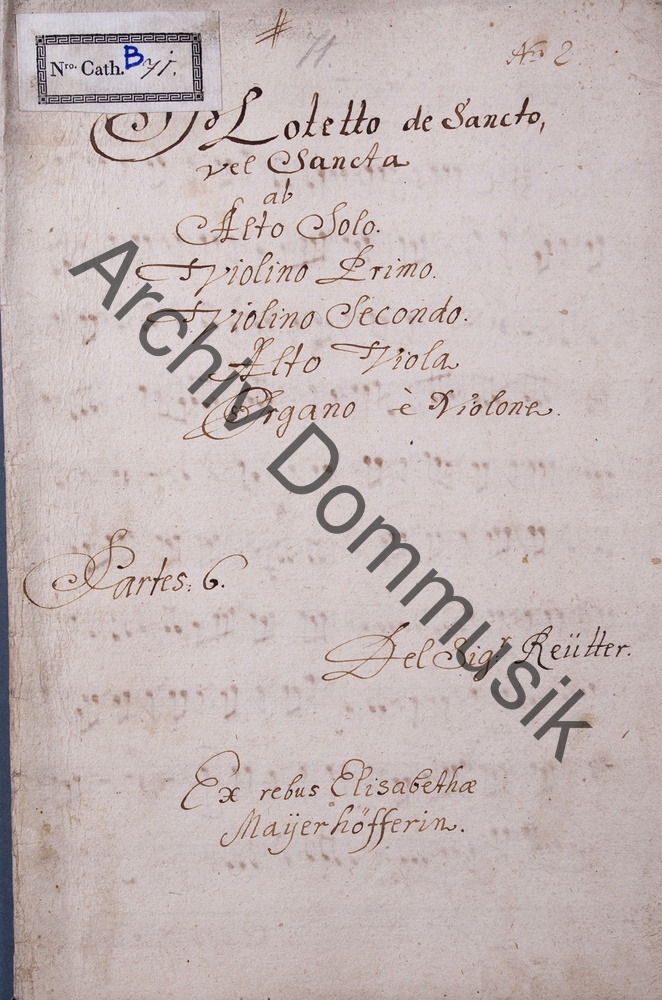 #
71.
No 2
Nro. Cath. B 71.
Motetto de Sancto,
vel Sancta
ab
Alto Solo.
Violino Primo.
Violino Secondo.
Alto Viola
Organo è Violone.
Partes: 6.
Del Sigr. Reütter.
Ex rebus Elisabethæ
Maÿerhöfferin.
Archiv Dommusik